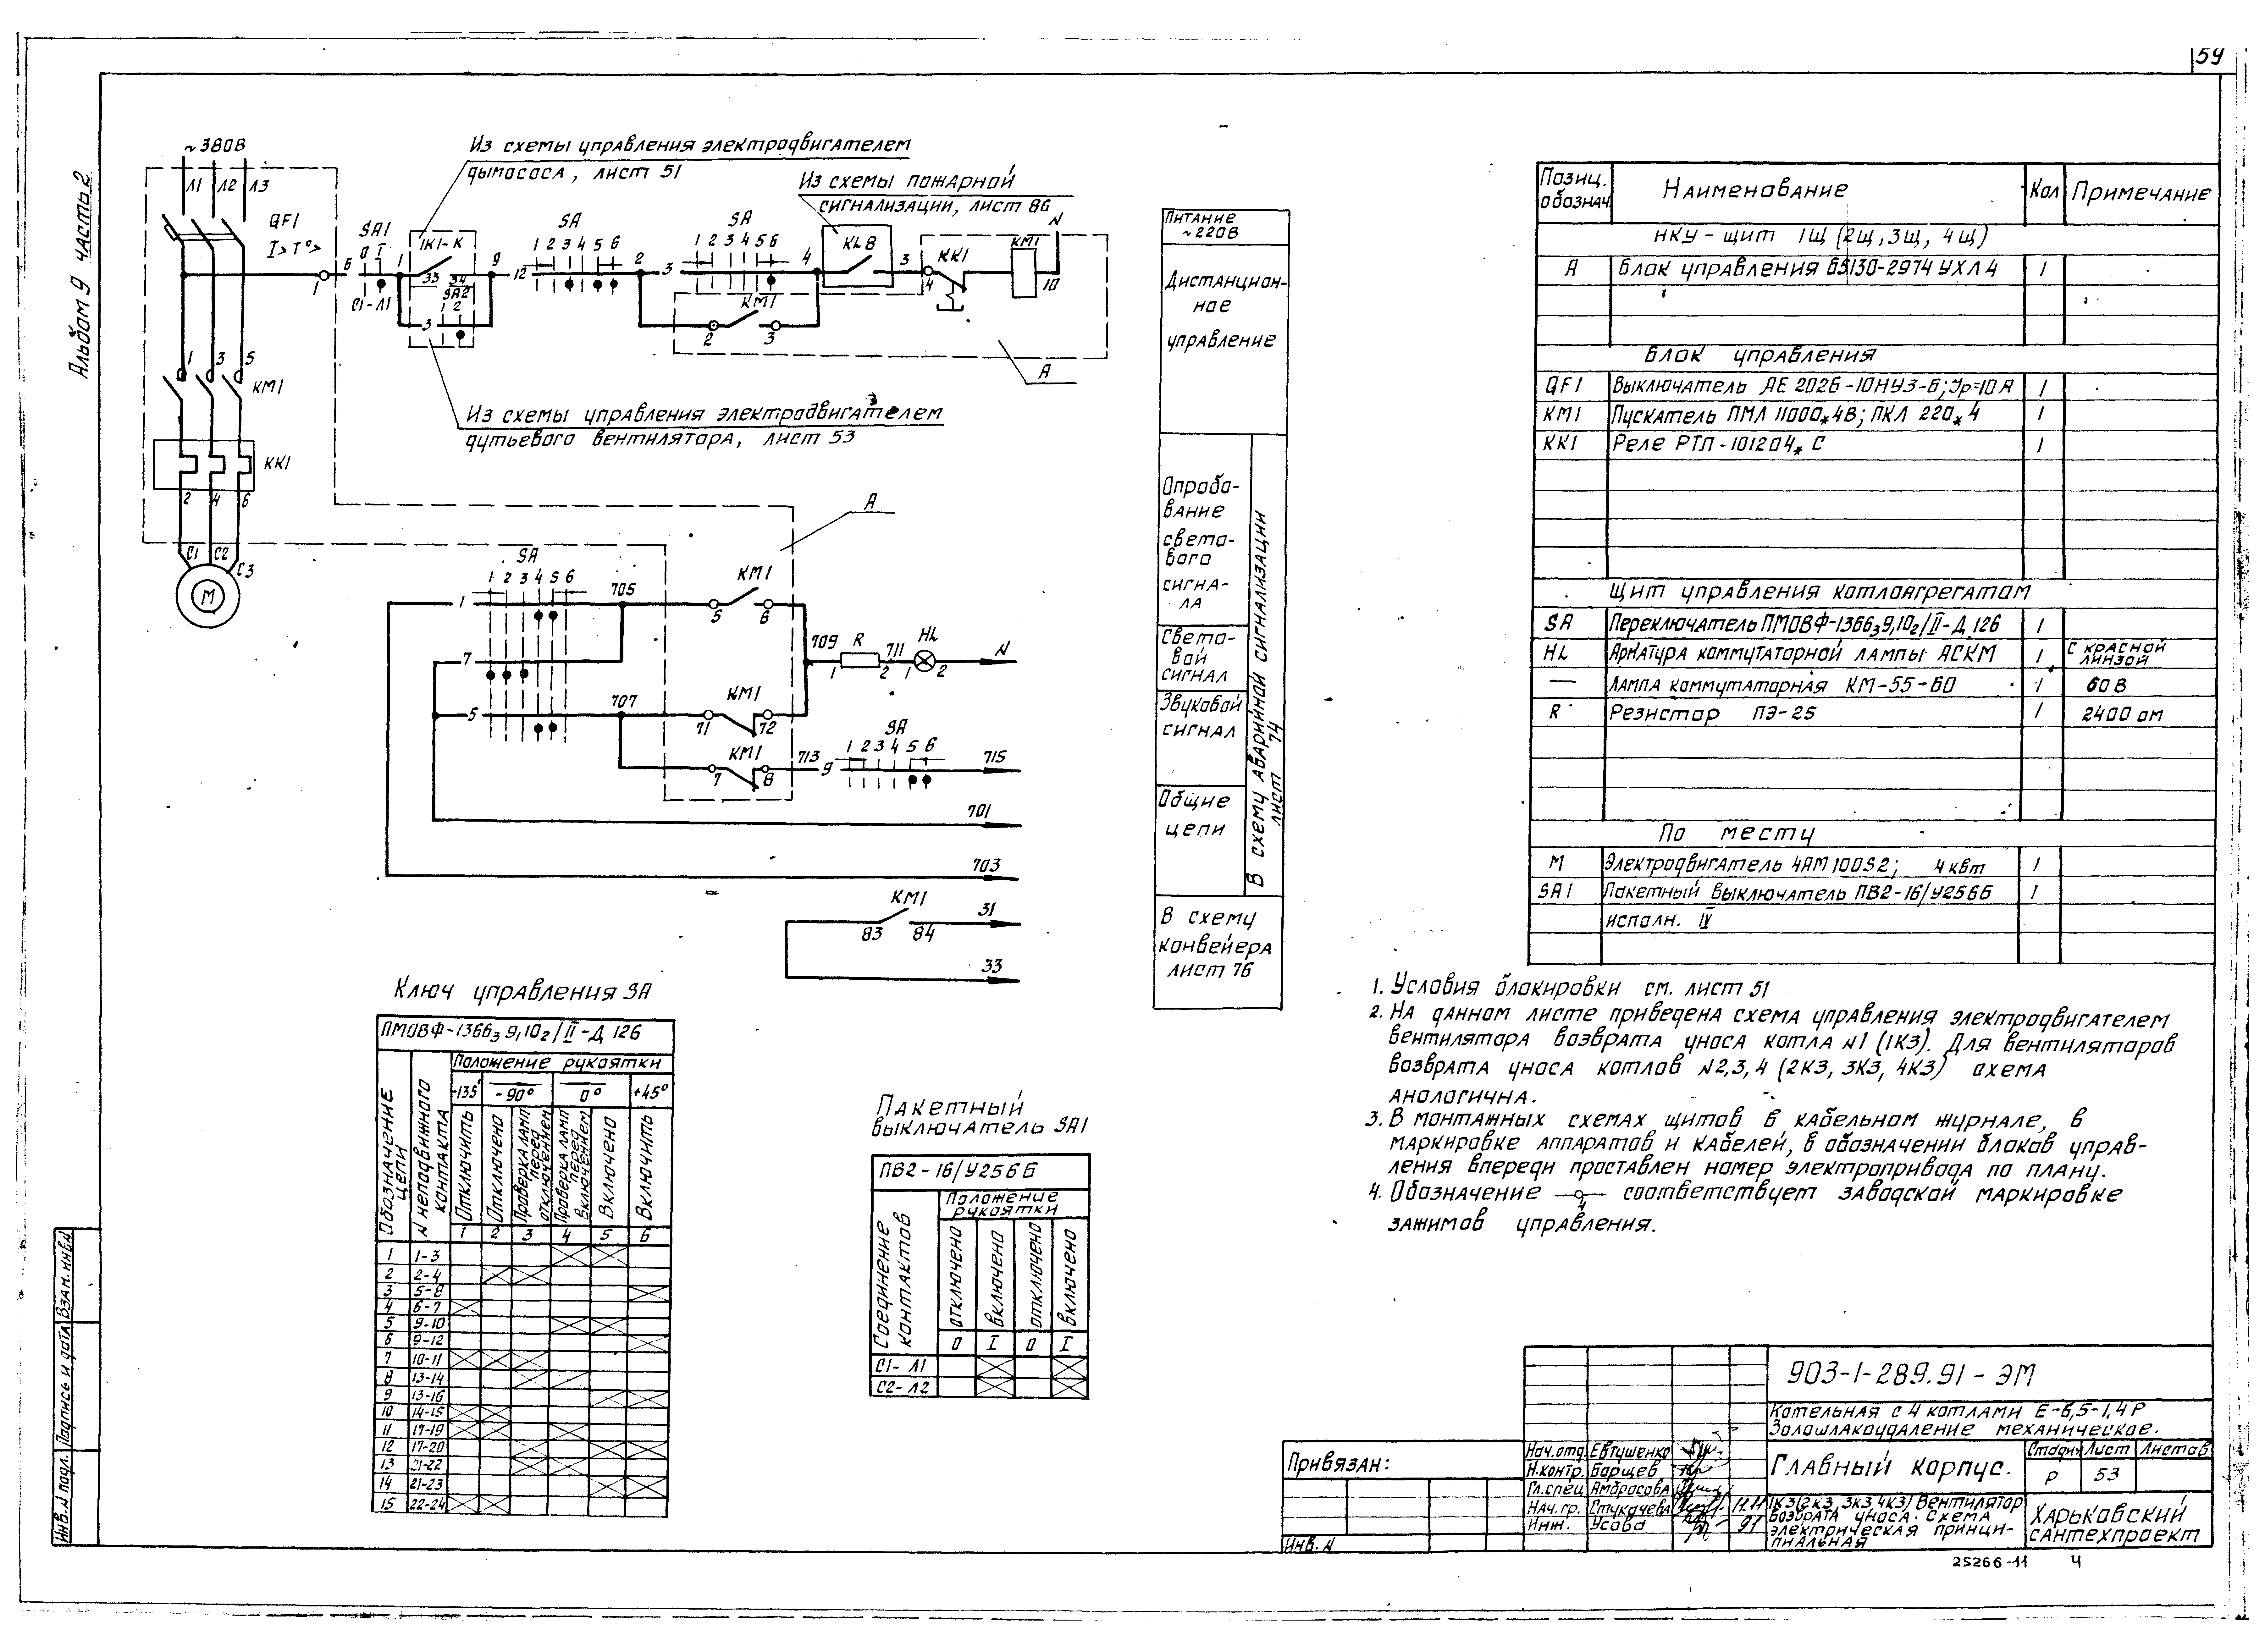 54
Альбом 9 часть 2
~380В
Л1 Л2 Л3
QF1
I> T°>
SA1
0 I
С1-Л1
Из схемы управления электродвигателем
дымососа, лист 51
1К1-К
33 34
SA2
1 2
SA
1 2 3 4 5 6
SA
1 2 3 4 5 6
Из схемы пожарной
сигнализации, лист 86
KL8
KK1
KM1
N
6 1 1 9 12 2 3 4 3 4 10
3
KM1
2 3
А
1 3 5
KM1
KK1
2 4 6
С1 С2 С3
М
Из схемы управления электродвигателем
дутьевого вентилятора, лист 53
А
SA
1 2 3 4 5 6
1 705
KM1
5 6
7
709 R 711 HL
1 2 1 2
N
5 707
KM1
71 72
KM1
7 8
713 9
SA
1 2 3 4 5 6
715
701
703
KM1
83 84
31
33
Питание
~220В
Дистанцион-
ное
управление
Опробо-
вание
свето-
вого
сигна-
ла
Свето-
вой
сигнал
Звуковой
сигнал
Общие
цепи
В схему аварийной сигнализации
лист 74
В схему
конвейера
лист 76
Ключ управления SA
ПМОВФ-1366₃9,10₂/II-Д126
Обозначение цепи
N неподвижного контакта
Положение рукоятки
-135° -90° 0° +45°
Отключить
Отключено
Проверка ламп перед отключением
Проверка ламп перед включением
Включено
Включить
1 2 3 4 5 6
1 1-3
2 2-4
3 5-8
4 6-7
5 9-10
6 9-12
7 10-11
8 13-14
9 13-16
10 14-15
11 17-19
12 17-20
13 21-22
14 21-23
15 22-24
Пакетный
выключатель SA1
ПВ2-16/У256Б
Соединение контактов
Положение
рукоятки
отключено
включено
отключено
включено
0 I 0 I
С1-Л1
С2-Л2
Позиц. обознач. Наименование Кол Примечание
НКУ-щит 1Щ (2Щ, 3Щ, 4Щ)
А Блок управления Б5130-2974 УХЛ4 1
Блок управления
QF1 Выключатель АЕ 2026-10НУЗ-Б; Iр=10А 1
KM1 Пускатель ПМЛ 11000*4В; ПКЛ 220*4 1
KK1 Реле РТЛ-101204*С 1
Щит управления котлоагрегатом
SA Переключатель ПМОВФ-1366₃9,10₂/II-Д 126 1
HL Арматура коммутаторной лампы АСКМ 1 с красной линзой
— Лампа коммутаторная КМ-55-60 1 60В
R Резистор ПЭ-25 1 2400 ом
По месту
М Электродвигатель 4АМ100S2; 4 квт 1
SA1 Пакетный выключатель ПВ2-16/У256Б 1
исполн. IV
1. Условия блокировки см. лист 51
2. На данном листе приведена схема управления электродвигателем
вентилятора возврата уноса котла N1 (1К3). Для вентиляторов
возврата уноса котлов N2,3,4 (2К3, 3К3, 4К3) схема
анологична.
3. В монтажных схемах щитов в кабельном журнале, в
маркировке аппаратов и кабелей, в обозначении блоков управ-
ления впереди проставлен номер электропривода по плану.
4. Обозначение —9— соответствует заводской маркировке
зажимов управления.
Привязан:
Инв. N
Нач.отд. Евтушенко
Н.контр. Борщев
Гл.спец. Амбросова
Нач.гр. Стукачева 11.11
Инж. Усова 91
903-1-289.91-ЭМ
Котельная с 4 котлами Е-6,5-1,4Р
Золошлакоудаление механическое.
Главный корпус.
Стадия Лист Листов
Р 53
1К3(2К3, 3К3, 4К3) Вентилятор
возврата уноса. Схема
электрическая принци-
пиальная
Харьковский
сантехпроект
25266-11 4
Инв.N подл. Подпись и дата Взам. инв.N